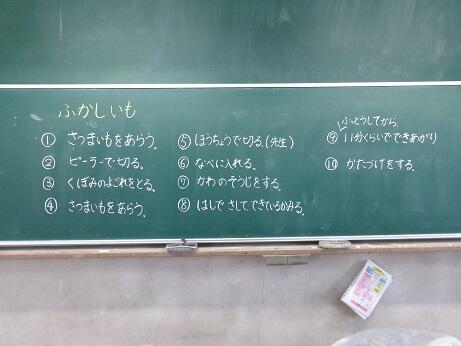 ふかしいも
① さつまいもをあらう。
② ピーラーで切る。
③ くぼみのよごれをとる。
④ さつまいもをあらう。
⑤ ほうちょうで切る。(先生)
⑥ なべに入れる。
⑦ かわのそうじをする。
⑧ はしで さして、できているかみる。
ふっとうしてから
⑨ 11分くらいでできあがり
⑩ かたづけをする。